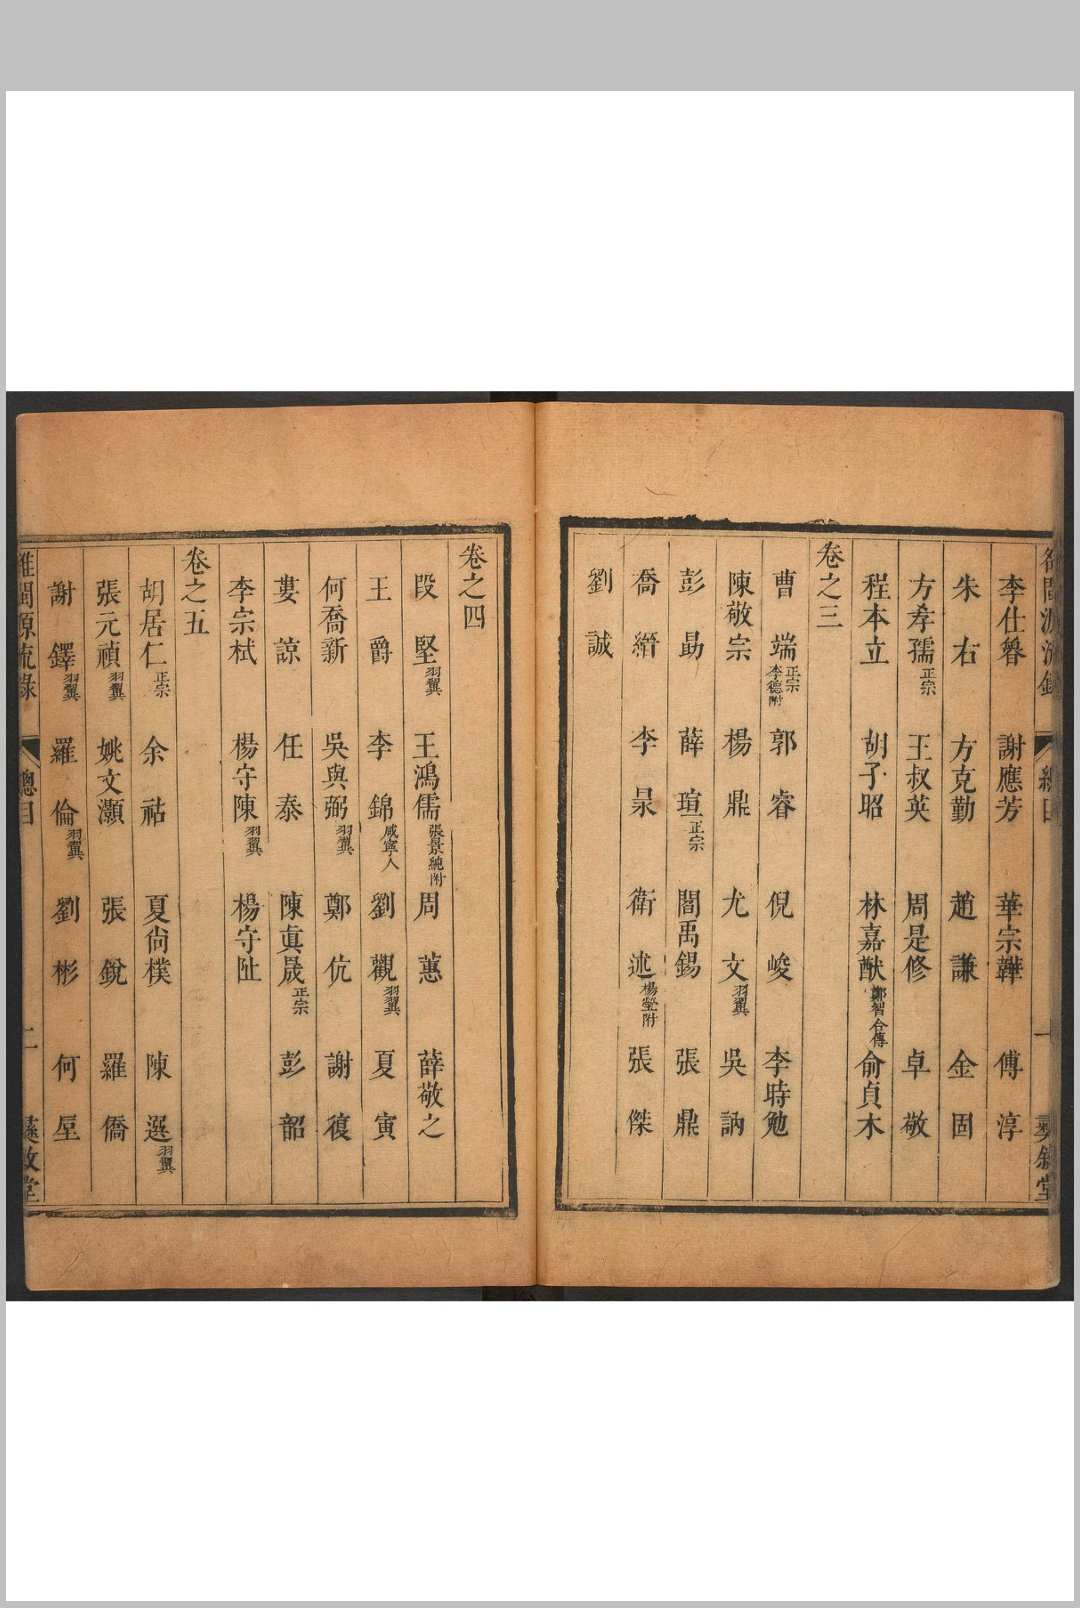 李仕魯　謝應芳　華宗韡　傅淳
朱右　方克勤　趙謙　金固
方孝孺正宗　王叔英　周是修　卓敬
程本立　胡子昭　林嘉猷鄭智合傳　俞貞木
卷之三
曹端正宗李德附　郭睿　倪峻　李時勉
陳敬宗　楊鼎　尤文羽翼　吳訥
彭勗　薛瑄正宗　閻禹錫　張鼎
喬縉　李杲　衛述楊瑩附　張傑
劉誠
卷之四
段堅羽翼　王鴻儒張景純附　周蕙　薛敬之
王爵　李錦咸寧人　劉觀羽翼　夏寅
何喬新　吳與弼羽翼　鄭伉　謝復
婁諒　任泰　陳真晟正宗　彭韶
李宗栻　楊守陳羽翼　楊守阯
卷之五
胡居仁正宗　余祜　夏尚樸　陳選羽翼
張元禎羽翼　姚文灝　張銳　羅僑
謝鐸羽翼　羅倫羽翼　劉彬　何垕
雒閩源流錄　總目　二　彝敘堂